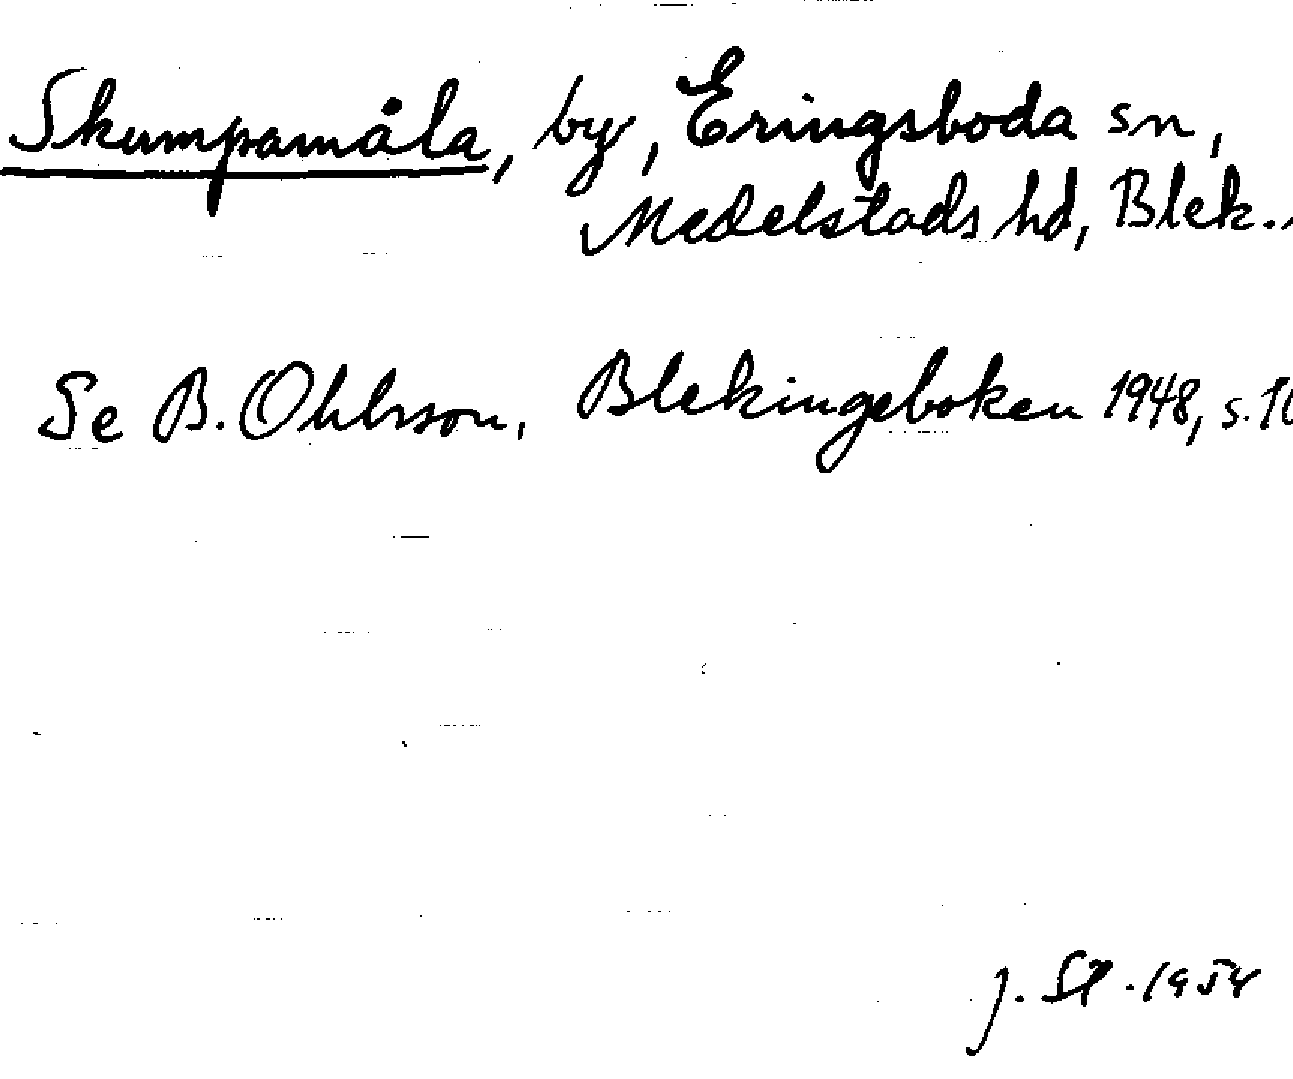 Skumpamåla, by, Eringsboda sn,
Medelstads hd, Blek.
Se B. Ohlsson, Blekingeboken 1948, s.
J. Sl. 1954